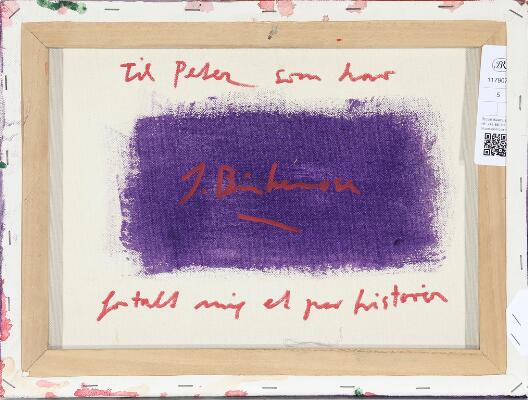 Til Peter som har
J. Birkemose
fortalt mig et par historier
BR
11790
5